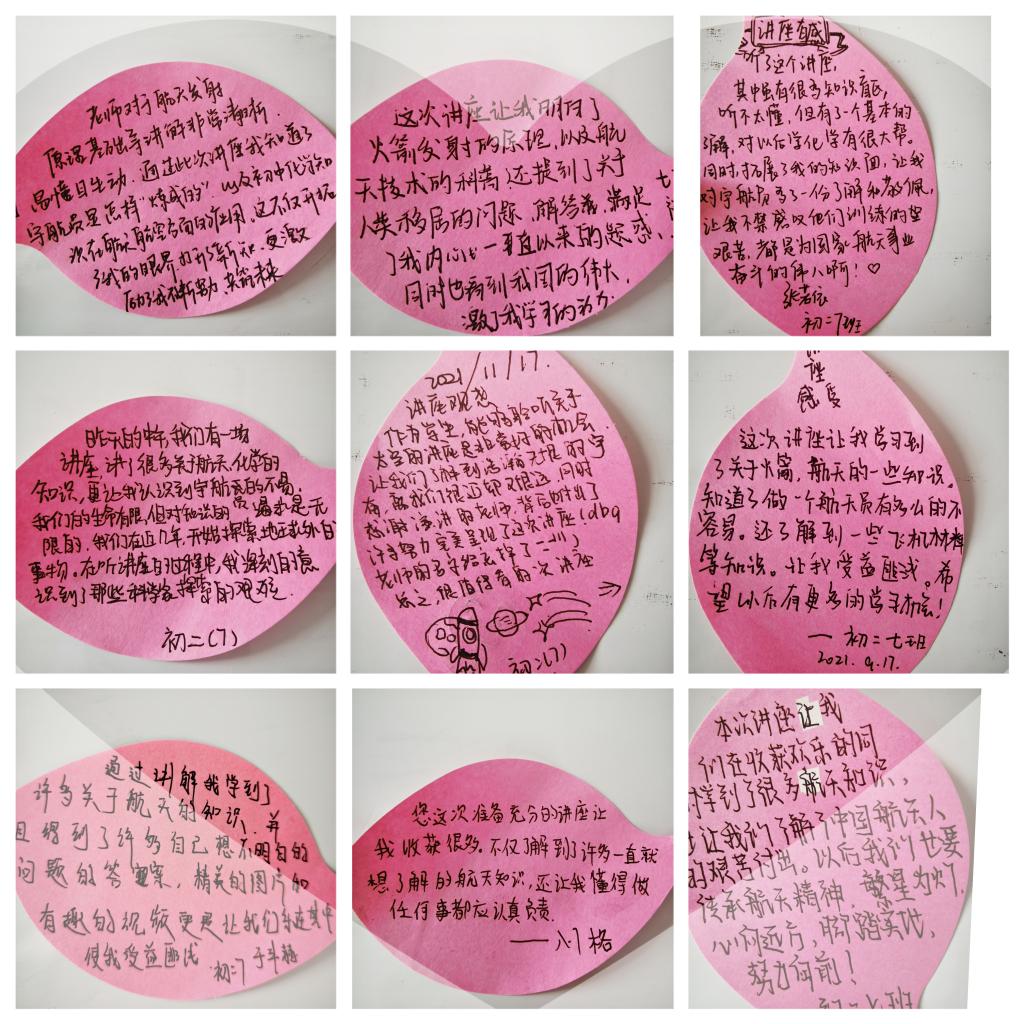 老师对于航天发射
原理基础等讲的非常清晰
易懂且生动，通过此次讲座我知道了
宇航员是怎样“炼成的”，以及初中化学知
识在航天航空方面的作用。这不仅开拓
了我的眼界
更激
励了我不断努力
这次讲座让我明白了
火箭发射的原理，以及航
天技术的科普，还提到了关于
人类移居的问题，解答着，满足
了我内心一直以来的疑惑，
同时也看到我国的伟大
激了我学习的动力
讲座有感
听了这个讲座，
其中虽有很多知识盲区，
听不太懂，但有了一个基本的
了解，对以后学化学有很大帮。
同时，拓展了我的知识面，让我
对宇航员多了一份了解和敬佩，
让我不禁感叹他们训练的坚
艰苦，都是为国家航天事业
奋斗的伟人啊！♡
张若
初二7班
昨天的中午，我们有一场
讲座，讲了很多关于航天，化学的
知识，更让我认识到宇航员的不易。
我们的生命有限，但对知识的渴求是无
限的，我们在近几年，开始探索地球外的
事物。在听讲座的过程中，我深刻的意
识到了那些科学家探索的艰辛。
初二(7)
2021/11/17.
讲座观想
作为学生，能够聆听关于
太空的讲座是非常好的机会
让我们了解到浩瀚无垠的宇
宙，离我们很近却很远，同时
感谢演讲的老师，背后付出了
许多努力完美呈现了这次讲座！(dbq
老师的名字给忘掉了
总之，很值得看的一次讲座
初二(7)
讲座
感受
这次讲座让我学习到
了关于火箭，航天的一些知识。
知道了做一个航天员有多么的不
容易。还了解到一些飞机材料
等知识。让我受益匪浅。希
望以后有更多的学习机会！
— 初二七班
2021.9.17.
通过讲解我学到了
许多关于航天的知识，并
且得到了许多自己想不明白的
问题的答案，精美的图片和
有趣的视频更是让我们乐在其中
使我受益匪浅
初二7 于
您这次准备充分的讲座让
我收获很多。不仅了解到了许多一直就
想了解的航天知识，还让我懂得做
任何事都应认真负责.
本次讲座让我
们在收获欢乐的同
时学到了很多航天知识，
让我们了解了中国航天人
的艰苦付出。以后我们也要
传承航天精神，繁星为灯，
心向远方，脚踏实地，
努力向前！
初二七班